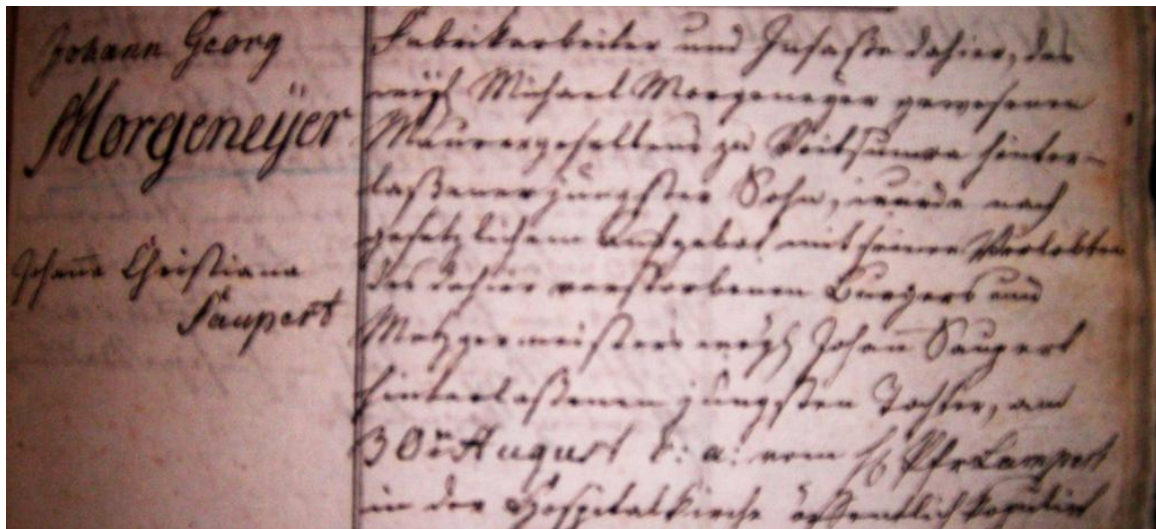 Johann Georg
Morgeneÿer
Johañe Christiana
Saupert
Fabrikarbeiter und Insaße dahier, des
weyl. Michael Morgeneyer gewesenen
Maurergesellens zu hinter-
laßener jüngster Sohn, wurde nach
gesetzlichem Aufgebot mit seiner Verlobten
des dahier verstorbenen Burgers und
Metzgermeisters weyl. Johañ Saupert
hinterlaßenen jüngsten Tochter, am
30: August h: a: vom H. Pfr Lampert
in der Hospitalkirche öffentlich kopulirt